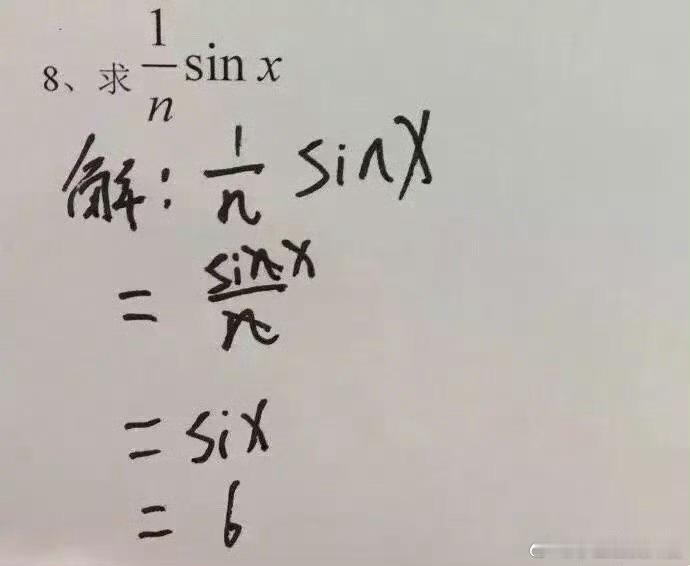 8、求 1/n sin x
解: 1/n sinx
= sinx/n
= six
= 6